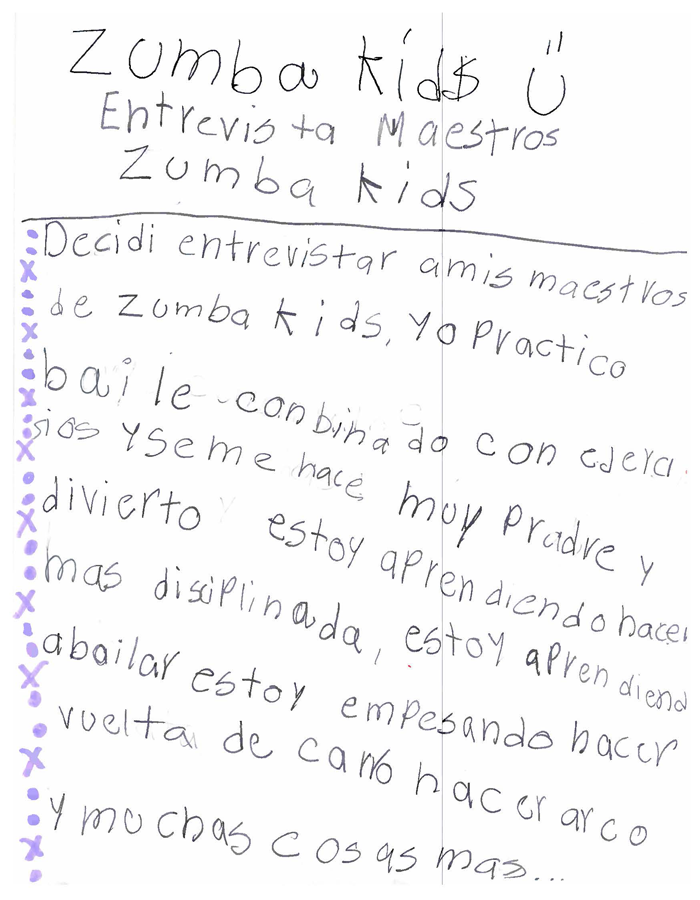 Zumba kids Ü
Entrevista Maestros
Zumba kids
Decidi entrevistar amis maestros
de zumba kids, yo practico
baile conbinado con ejerci
sios y se me hace muy pradre y
divierto estoy aprendiendo hacer
mas disciplinada, estoy aprendiend
abailar estoy empesando hacer
vuelta de carro hacer arco
y muchas cosas mas...